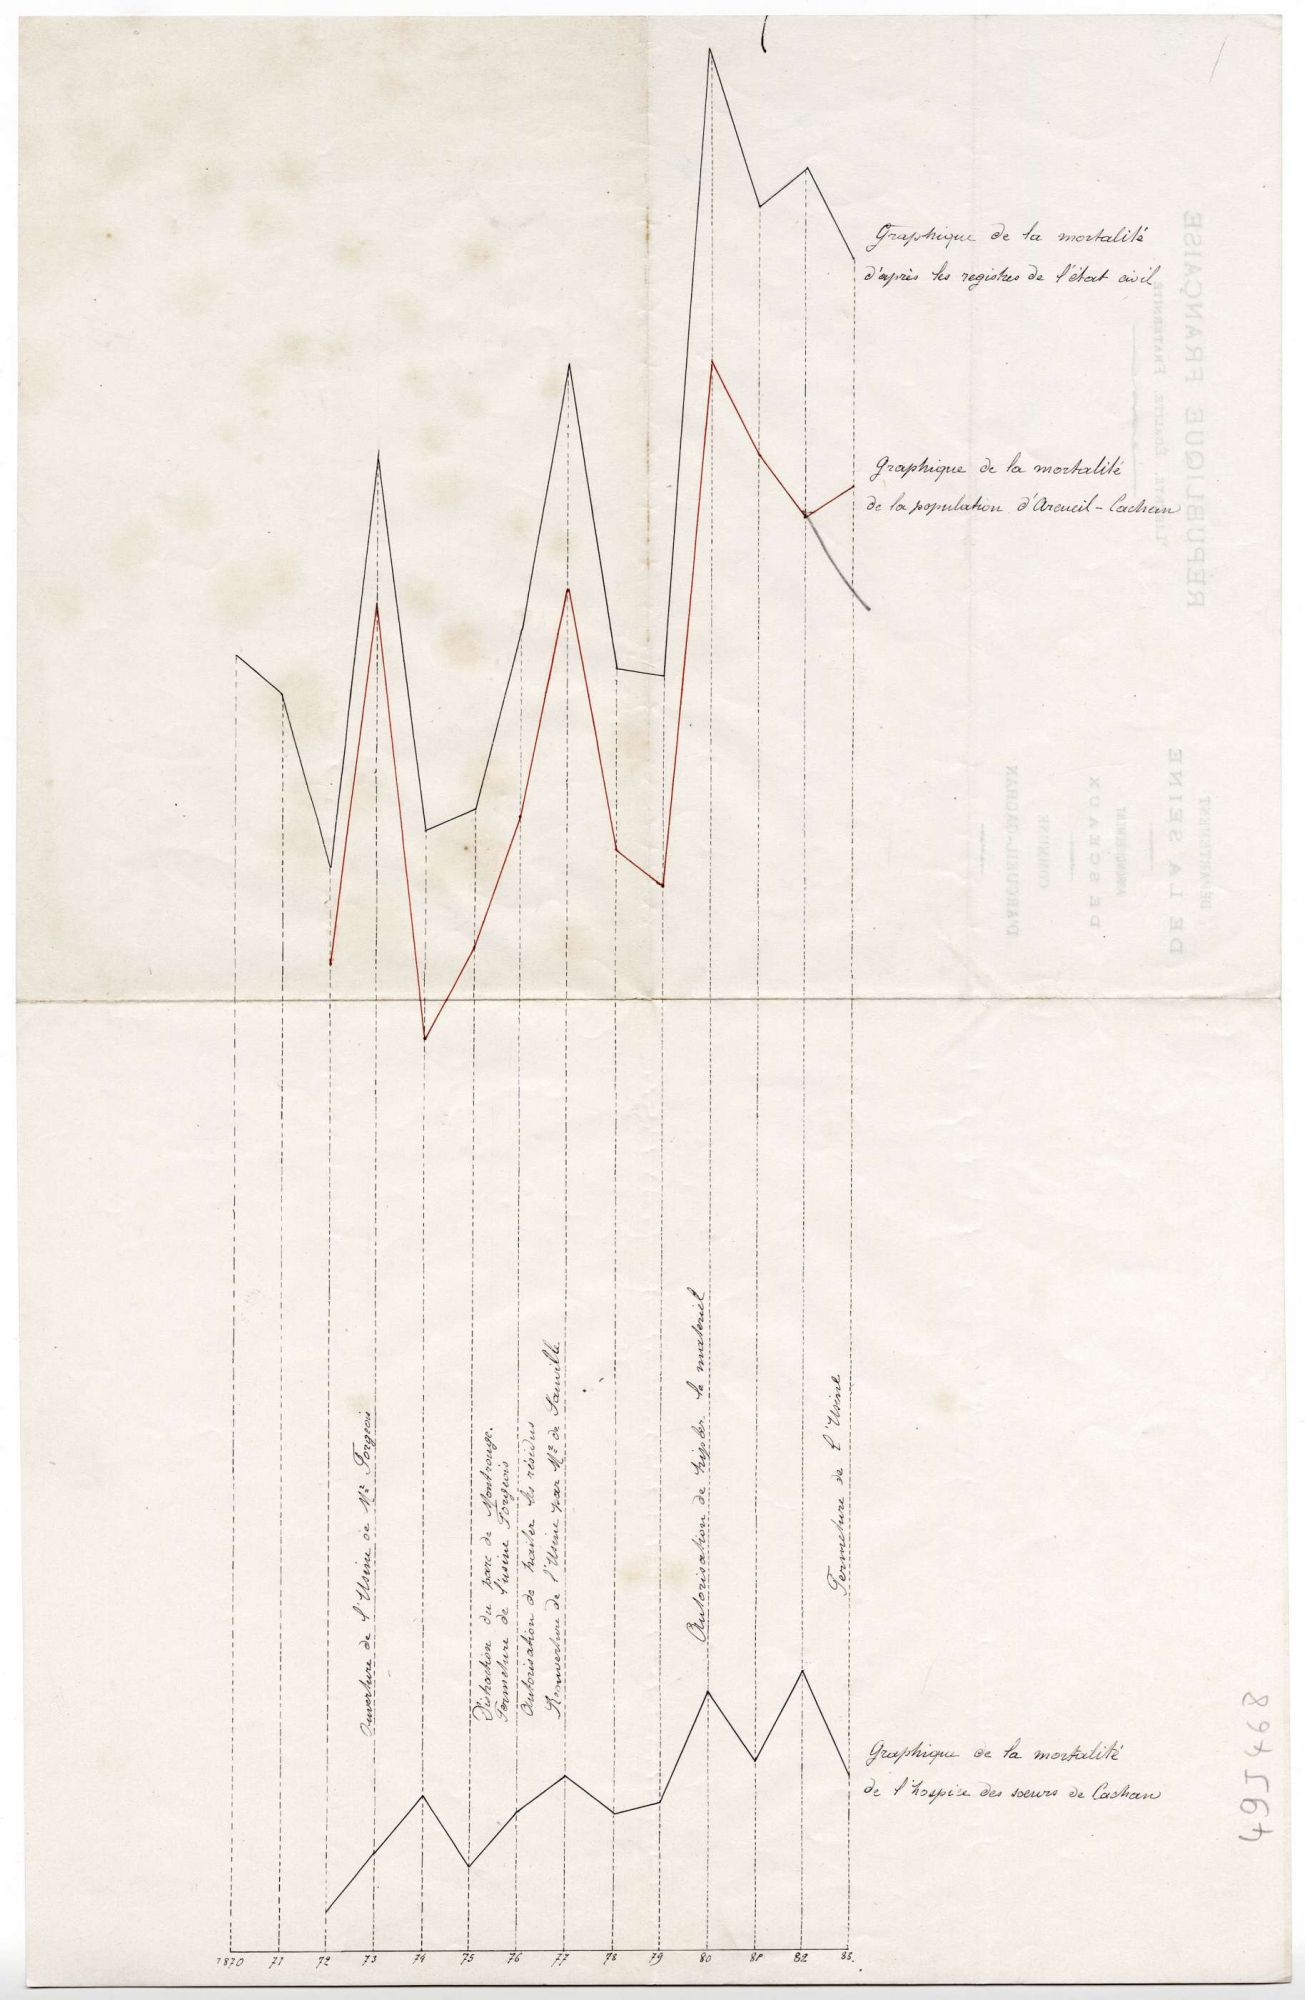 Graphique de la mortalité
d'après les registres de l'état civil
Graphique de la mortalité
de la population d'Arcueil-Cachan
RÉPUBLIQUE FRANÇAISE
LIBERTÉ, ÉGALITÉ, FRATERNITÉ
DÉPARTEMENT
DE LA SEINE
ARRONDISSEMENT
DE SCEAUX
COMMUNE
D'ARCUEIL-CACHAN
Ouverture de l'Usine de Mr Forgeois
du parc de Montrouge.
Fermeture de l'usine Forgeois
Autorisation de traiter les résidus
Réouverture de l'Usine par Mr de
Autorisation de tripler le matériel
Fermeture de l'Usine
Graphique de la mortalité
de l'hospice des sœurs de Cachan
1870 71 72 73 74 75 76 77 78 79 80 81 82 83.
49J468